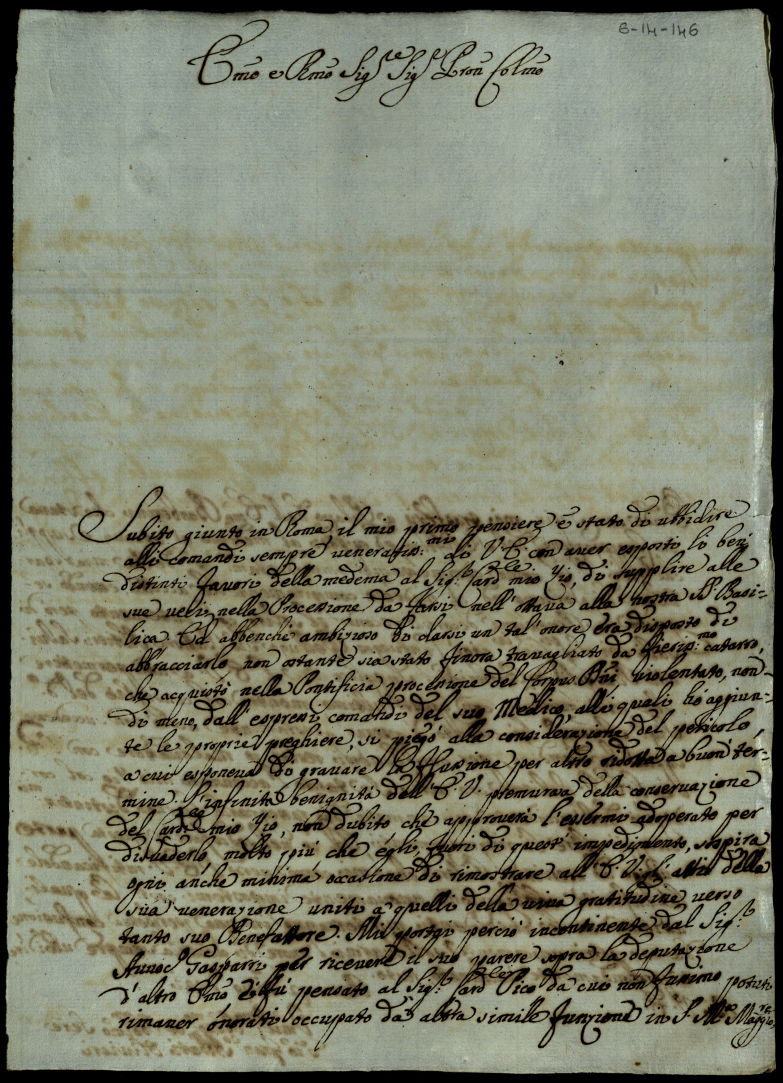 6-14-146
Emo e Rmo Sig.re Sig.r Pron Colmo
Subito giunto in Roma il mio primo pensiere è stato di ubbidire
alli comandi sempre veneratis:mi di V E con aver esposti li beni
distinti favori della medema al Sig.r Card.le mio Zio, di supplire alle
sue veci nella Processione da farsi nell'ottava alla nostra Basi-
lica Ed abbenche ambizioso di darsi un tal'onore era disposto di
abbracciarlo non ostante sia stato finora travagliato da fieris:mo catarro,
che acquistò nella Pontificia processione del Corpus Dni violentato, non-
di meno, dall'espressi comandi del suo Medico, alli quali hò aggiun-
te le proprie preghiere, si piegò alla considerazione del pericolo,
a cui esponeva di gravare la flussione per altro ridotta a buon ter-
mine. L'infinita benignità dell'E. V. premurosa della conservazione
del Card.le mio Zio, non dubito che approverà l'essermi adoperato per
disuaderlo, molto più che egli, fuori di quest'impedimento, sospira
ogni, anche minima occasione di rimostrare all'E V gli atti della
sua venerazione uniti à quelli della viva gratitudine verso
tanto suo Benefattore. Mi portai perciò incontinente dal Sig.r
Avvoc.o Gasparri per ricevere il suo parere sopra la deputazione
d'altro Emo, e fù pensato al Sig.r Card.le Pico da cui non fussimo potuti
rimaner onorati occupato da altra simile funzione in S. M.a Magg.re